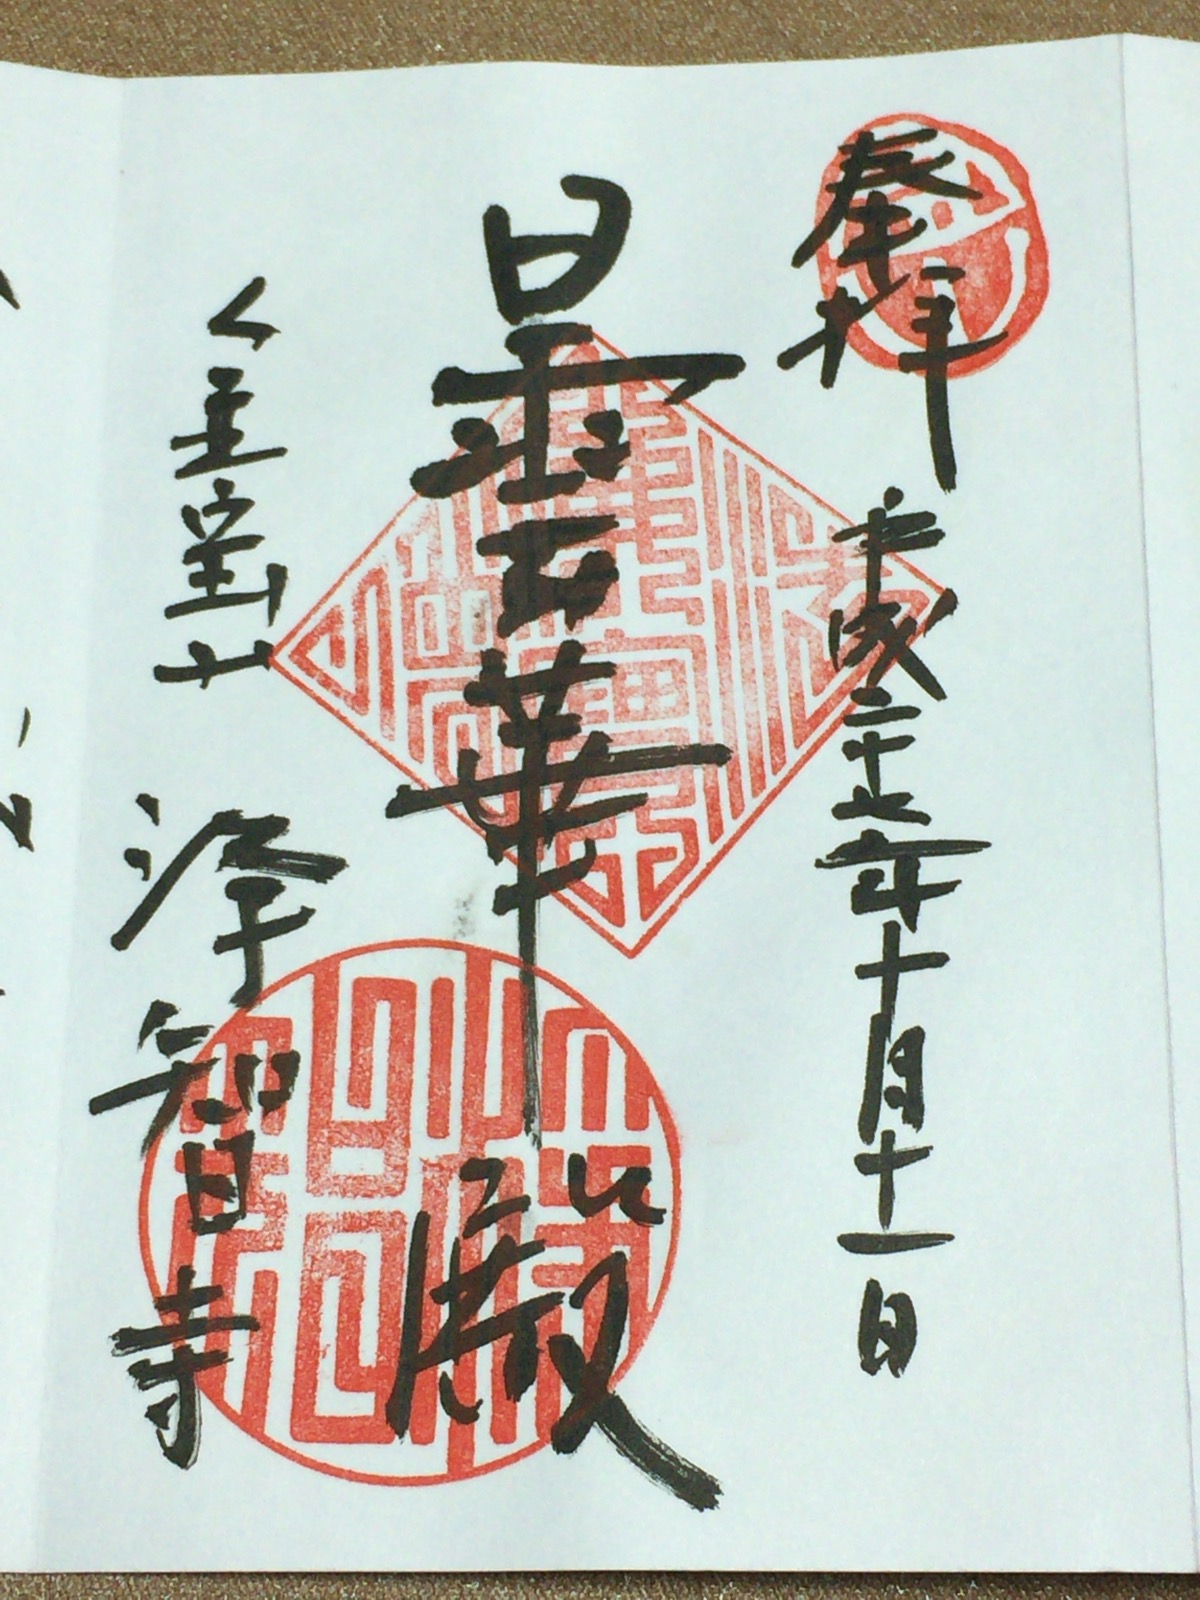 奉拝
平成二十七年十月十一日
曇華殿
金宝山
浄智寺